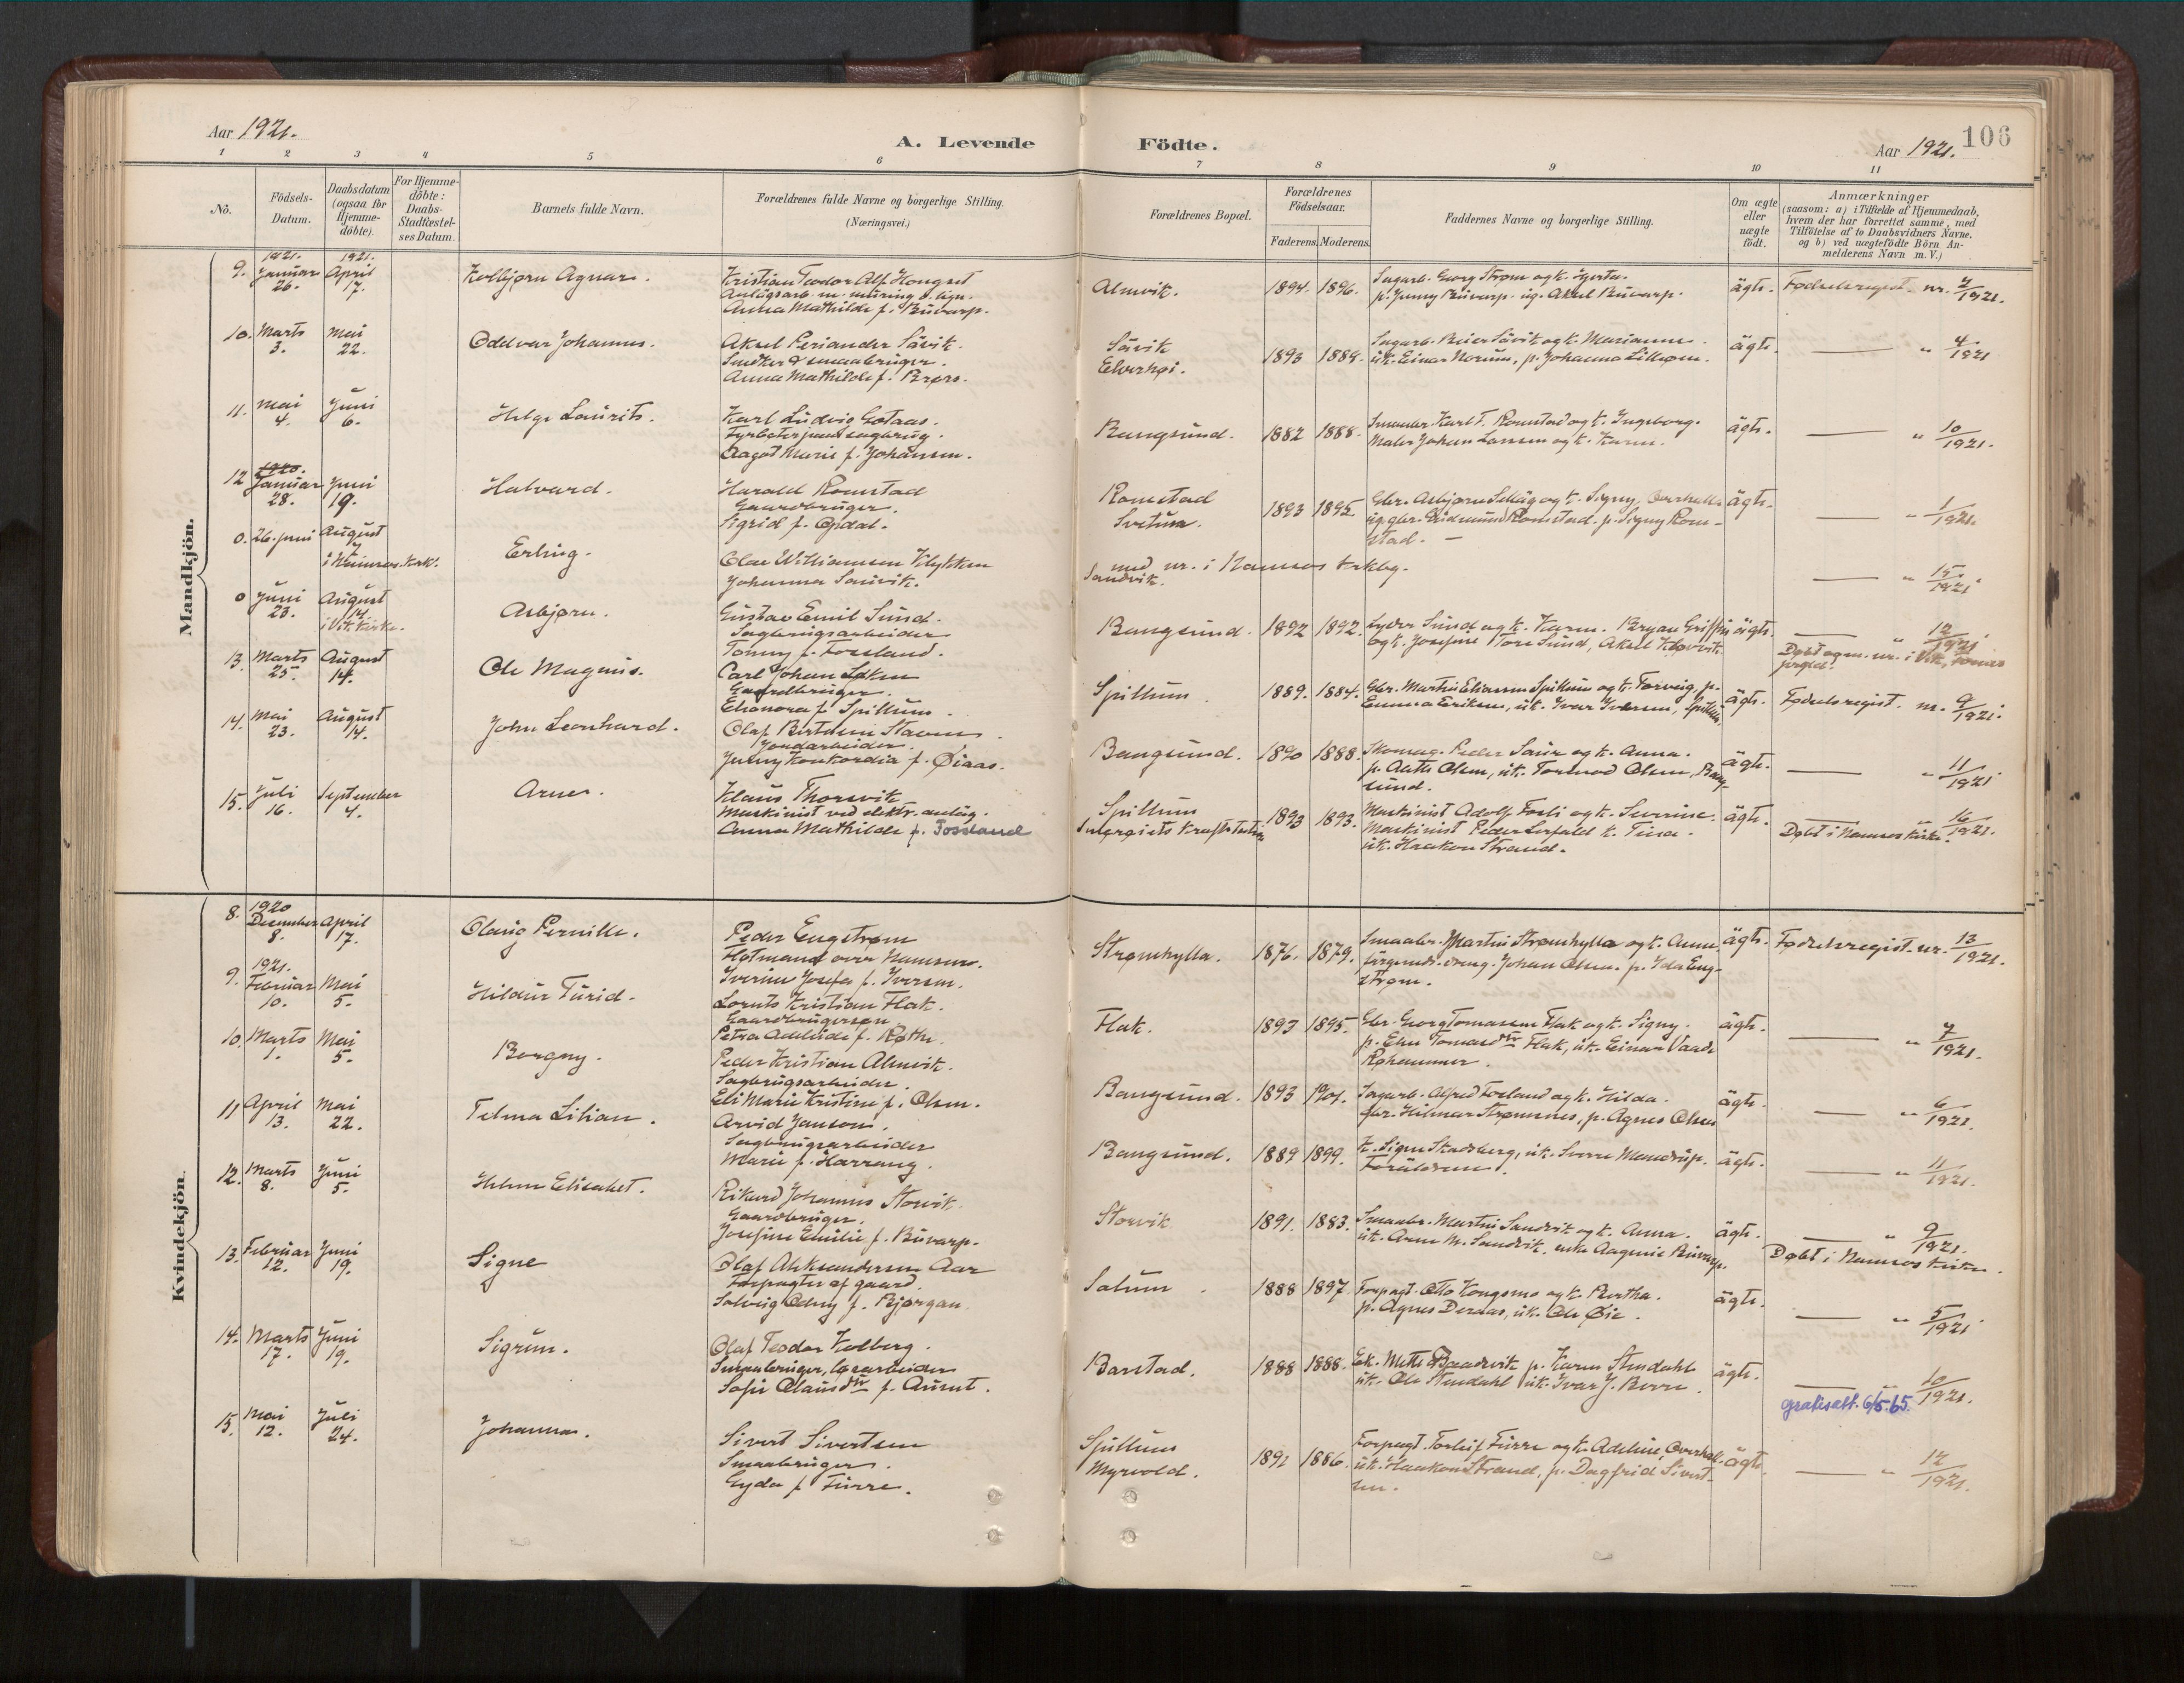 Aar 1921.
A. Levende Födte.
Aar 1921.
106
1 2 3 4 5 6 7 8 9 10 11
No.
Födsels-Datum.
Daabsdatum (ogsaa for Hjemme-döbte).
For Hjemme-döbte: Daabs-Stadfæstel-ses Datum.
Barnets fulde Navn.
Forældrenes fulde Navne og borgerlige Stilling.
(Næringsvei.)
Forældrenes Bopæl.
Forældrenes Födselsaar.
Faderens. Moderens.
Faddernes Navne og borgerlige Stilling.
Om ægte eller uægte födt.
Anmærkninger
(saasom: a) i Tilfælde af Hjemmedaab,
hvem der har forrettet samme, med
Tilföielse af to Daabsvidners Navne,
og b) ved uægtefödte Börn An-
melderens Navn m. V.)
Mandkjön.
9. 1921. Januar 26. 1921. April 17. Kolbjørn Agnar.
Kristian Teodor Alf Hongset
Anlägsarb. m. muring o. lign.
Anna Mathilde f. Buvarp.
Almvik. 1894. 1896.
Sagarb. Georg Strøm og k. Hjerta.
p. Jenny Buvarp. ug. Aksel Buvarp.
ägte. Fødselsregist. nr. 2/1921.
10. Marts 3. Mai 22. Oddvar Johannes.
Aksel Periander Sävik.
Snedker & smaabruger.
Anna Mathilde f. Brørs.
Sävik
Elverhøi. 1893 1889.
Sagarb. Beier Sävik og k. Marianne.
uk. Einar Norum, p. Johanna Lilleøen.
ägte. " 4/1921
11. Mai 4. Juni 6. Helge Laurits.
Karl Ludvig Gotaas.
Fyrbøter paa sagbrug.
Aagot Marie f. Johansen.
Bangsund. 1882 1888.
Smaabr. Karl F. Romstad og k. Ingeborg.
Maler Johan Larsen og k. Karen.
ägte. " 10/1921.
12 1920. Januar 28. Juni 19. Halvard.
Harald Romstad
Gaardbruger.
Sigrid f. Opdal.
Romstad
Svetun. 1893 1895.
Gbr. Asbjørn Selläg og k. Signy, Overhalla
ug. gbr. Gudmund Romstad. p. Signy Rom-
stad.
ägte. " 1/1921.
0. 26. juni August 7 i Namsos. Kirk. Erling.
Olav Williamsen Klykken
Johanna Sandvik.
Sandvik.
med nr. i Namsos kirkbg.
" 15/1921
0 Juni 23. August 14. i Vik. Kirke. Asbjørn.
Gustav Emil Sund.
Sagbrugsarbeider
Tonny f. Fossland.
Bangsund. 1892 1892.
Lyder Sund og k. Karen. Bryan Griffin
og k. Josefine Tore Sund, Aksel Kløvvik
ägte. " 12/1921
Døbt og m. nr. i Vik,
13. Marts 25. August 14. Ole Magnus.
Carl Johan
Gaardbruger.
Elionora f. Spillum.
Spillum 1889. 1884.
Gbr. Martin Eliassen Spillum og k. Torveig, p.
Emma Eriksen, uk. Ivar Iversen, Spillum
ägte. Fødselsregist. nr. 9/1921.
14. Mai 23. August 14. John Leonhard.
Olaf Bertinius Stavnes.
Jordarbeider.
Jenny Konkordia f. Øiaas.
Bangsund. 1890 1888.
Skomag. Peder Saur og k. Anna.
p. Aasta Olsen, uk. Tormod Olsen, Bang-
sund.
ägte. " 11/1921
15. Juli 16. September 4. Arne.
Klaus Thorsvik
Maskinist ved elektr. anläg.
Anna Mathilde f. Fossland
Spillum
Kraftstation 1893 1893.
Maskinist Adolf Forli og k. Severine.
Maskinist Peder Lerfald k. Tina.
uk. Haakon Strand.
ägte. " 16/1921.
Døbt i Namsos kirke.
Kvindekjön.
8. 1920 December 8. April 17. Olaug Pernille.
Peder Engstrøm
Hotmand over Namsen.
Iverine Josefa f. Iversen.
Strømhylla. 1876. 1879.
Smaabr. Martin Strømhylla og k. Anna.
Johan Olsen. p. Ida Eng-
strøm.
ägte. Fødselsregist. nr. 13/1921.
9. 1921. Februar 10. Mai 5. Hildur Turid.
Lorents Kristian Flak.
Gaardbrugersøn
Petra Adelaide f. Røthe.
Flak. 1893 1895.
Gbr. Georg Tomassen Flak og k. Signy.
p. Elen Tomasdtr Flak, uk. Einar Vaade
Røhammer.
ägte. " 7/1921.
10. Marts 1. Mai 5. Borgny.
Peder Kristian Almvik.
Sagbrugsarbeider.
Eli Marie Kristine f. Olsen.
Bangsund. 1893 1901.
Sagarb. Alfred Forland og k. Hilda.
gbr. Hilmar Strømsnes, p. Agnes Olsen
ägte. " 6/1921.
11 April 13. Mai 22. Telma Lilian.
Arvid Janson.
Sagbrugsarbeider
Marie f. Harrang.
Bangsund. 1889 1899.
k. Signe Skadsberg, uk. Sverre Mandrup.
Foräldrene.
ägte. " 11/1921.
12. Marts 8. Juni 5. Helene Elisabet.
Rikard Johannes Storvik.
Gaardbruger.
Josefine Emilie f. Buvarp.
Storvik 1891. 1883.
Smaabr. Martin Sandvik og k. Anna.
uk. Arne M. Sandvik. enke Aagenie Buvarp.
ägte. " 9/1921.
Døbt i Namsos kirke.
13. Februar 12. Juni 19. Signe
Olaf Aleksandersen Aar
Forpagter af gaard.
Solveig Odny f. Bjørgan.
Satum. 1888 1897.
Forpagt. Otto Kongsmo og k. Bertha.
p. Agnes Deraas, uk. Ole Øie.
ägte. " 5/1921
14. Marts 17. Juni 19. Sigrun.
Olaf Teodor Kolberg.
Smaabruger, løsarbeider
Sofie Olausdtr f. Aunet.
Barstad. 1888 1888.
Ek. Mette Baadsvik p. Karen Stendahl
uk. Ole Stendahl uk. Ivar J. Berre.
ägte. " 10/1921.
gratisatt. 6/5.65.
15. Mai 12. Juli 24. Johanna.
Sivert Sivertsen
Smaabruger.
Gyda f. Furre.
Spillum
Myrvold. 1891 1886.
Forpagt. Torleif Furre og k. Adeline, Overhall.
uk. Haakon Strand, p. Dagfrid Sivert-
sen.
ägte. " 12/1921.